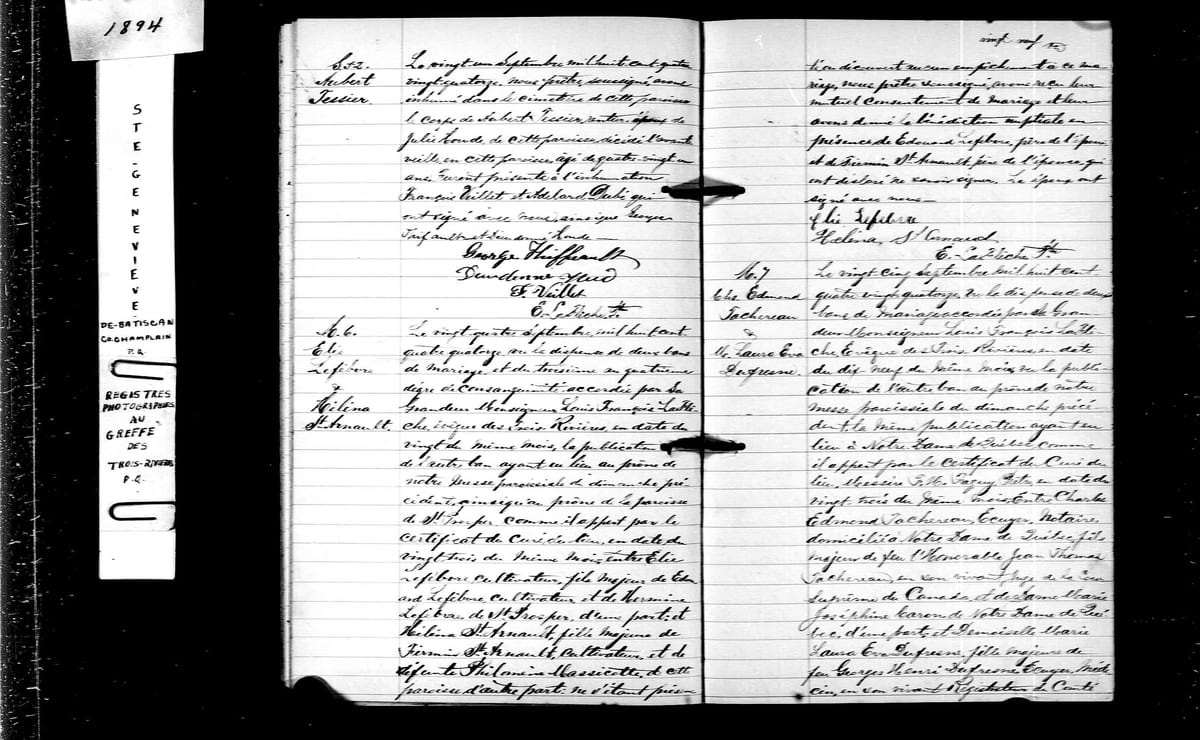 1894
STE-GENEVIEVE
DE-BATISCAN
CO.CHAMPLAIN
P.Q.
REGISTRES
PHOTOGRAPHIES
AU
GREFFE
DES
TROIS-RIVIERES
P.Q.
S 52.
Aubert
Tessier
Le vingt un Septembre mil huit cent quatre
vingt quatorze, nous prêtre soussigné, avons
inhumé dans le cimetière de cette paroisse
le corps de Aubert Tessier, rentier époux de
Julie Houde, de cette paroisse, décédé l'avant
veille, en cette paroisse, âgé de quatre-vingt un
ans. Furent présents à l'inhumation
François Veillet et Adelard Dubé qui
ont signé avec nous, ainsi que Georges
Trifault et Dieudonné Houde—
George Thiffeault
F. Veillet
E. LaFlèche Ptre
M. 6.
Elie
Lefebvre
&
Hélèna
St. Arnault.
Le vingt quatre septembre, mil huit cent
quatre quatorze, vu la dispense de deux bans
de mariage et du troisième au quatrième
dégré de consanguinité accordée par Sa
Grandeur Monseigneur Louis François Laflè-
che, évêque des Trois Rivières, en date du
vingt du même mois, la publication
de l'autre ban ayant eu lieu au prône de
notre messe paroissiale du dimanche pré-
cédent, ainsi qu'au prône de la paroisse
de St. Prosper comme il appert par le
certificat du Curé du lieu, en date du
vingt trois du même mois, entre Elie
Lefebvre cultivateur, fils majeur de Edou
ard Lefebvre cultivateur et de Hermine
de St. Prosper, d'une part; et
Hélèna St. Arnault, fille majeure de
Firmin St. Arnault, Cultivateur, et de
défunte Philomène Massicotte, de cette
paroisse d'autre part: ne s'étant présen
vingt neuf
té ou découvert aucun empêchement à ce ma
riage, nous prêtre soussigné, avons reçu leur
mutuel consentement de mariage et leur
avons donné la bénédiction nuptiale en
présence de Edouard Lefebvre, père de l'époux
et de Firmin St. Arnault, père de l'épouse, qui
ont déclaré ne savoir signer. Les époux ont
signé avec nous—
Elie Lefebvre
Helèna St Arnaud
E. LaFlèche Ptre
M. 7
Chs. Edmond
Tachereau
&
M. Laura Eva
Dufresne.
Le vingt cinq Septembre mil huit cent-
quatre vingt quatorze, vu la dispense de deux
bans de Mariage accordée par Sa Gran-
deur Monseigneur Louis François Laflè-
che, Evêque des Trois Rivières en date
du dix neuf du même mois, vu la publi-
cation de l'autre ban au prône de notre
messe paroissiale du dimanche précé-
dent, la même publication ayant eu
lieu à Notre Dame de Québec, comme
il appert par le certificat du Curé du
lieu, Messire F. H. Faguy Ptre, en date du
vingt trois du même mois, Entre Charles
Edmond Tachereau, Ecuyer, Notaire,
domicilié à Notre Dame de Québec, fils
majeur de feu l'Honorable Jean Thomas
Tachereau, en son vivant Juge de la Cour
Suprême du Canada, et de Dame Marie
Joséphine Caron de Notre Dame de Qué-
bec, d'une part; et Demoiselle Marie
Laura Eva Dufresne, fille majeure de
feu Georges Henri Dufresne Ecuyer, Méde
cin, en son vivant Régistrateur du Comté